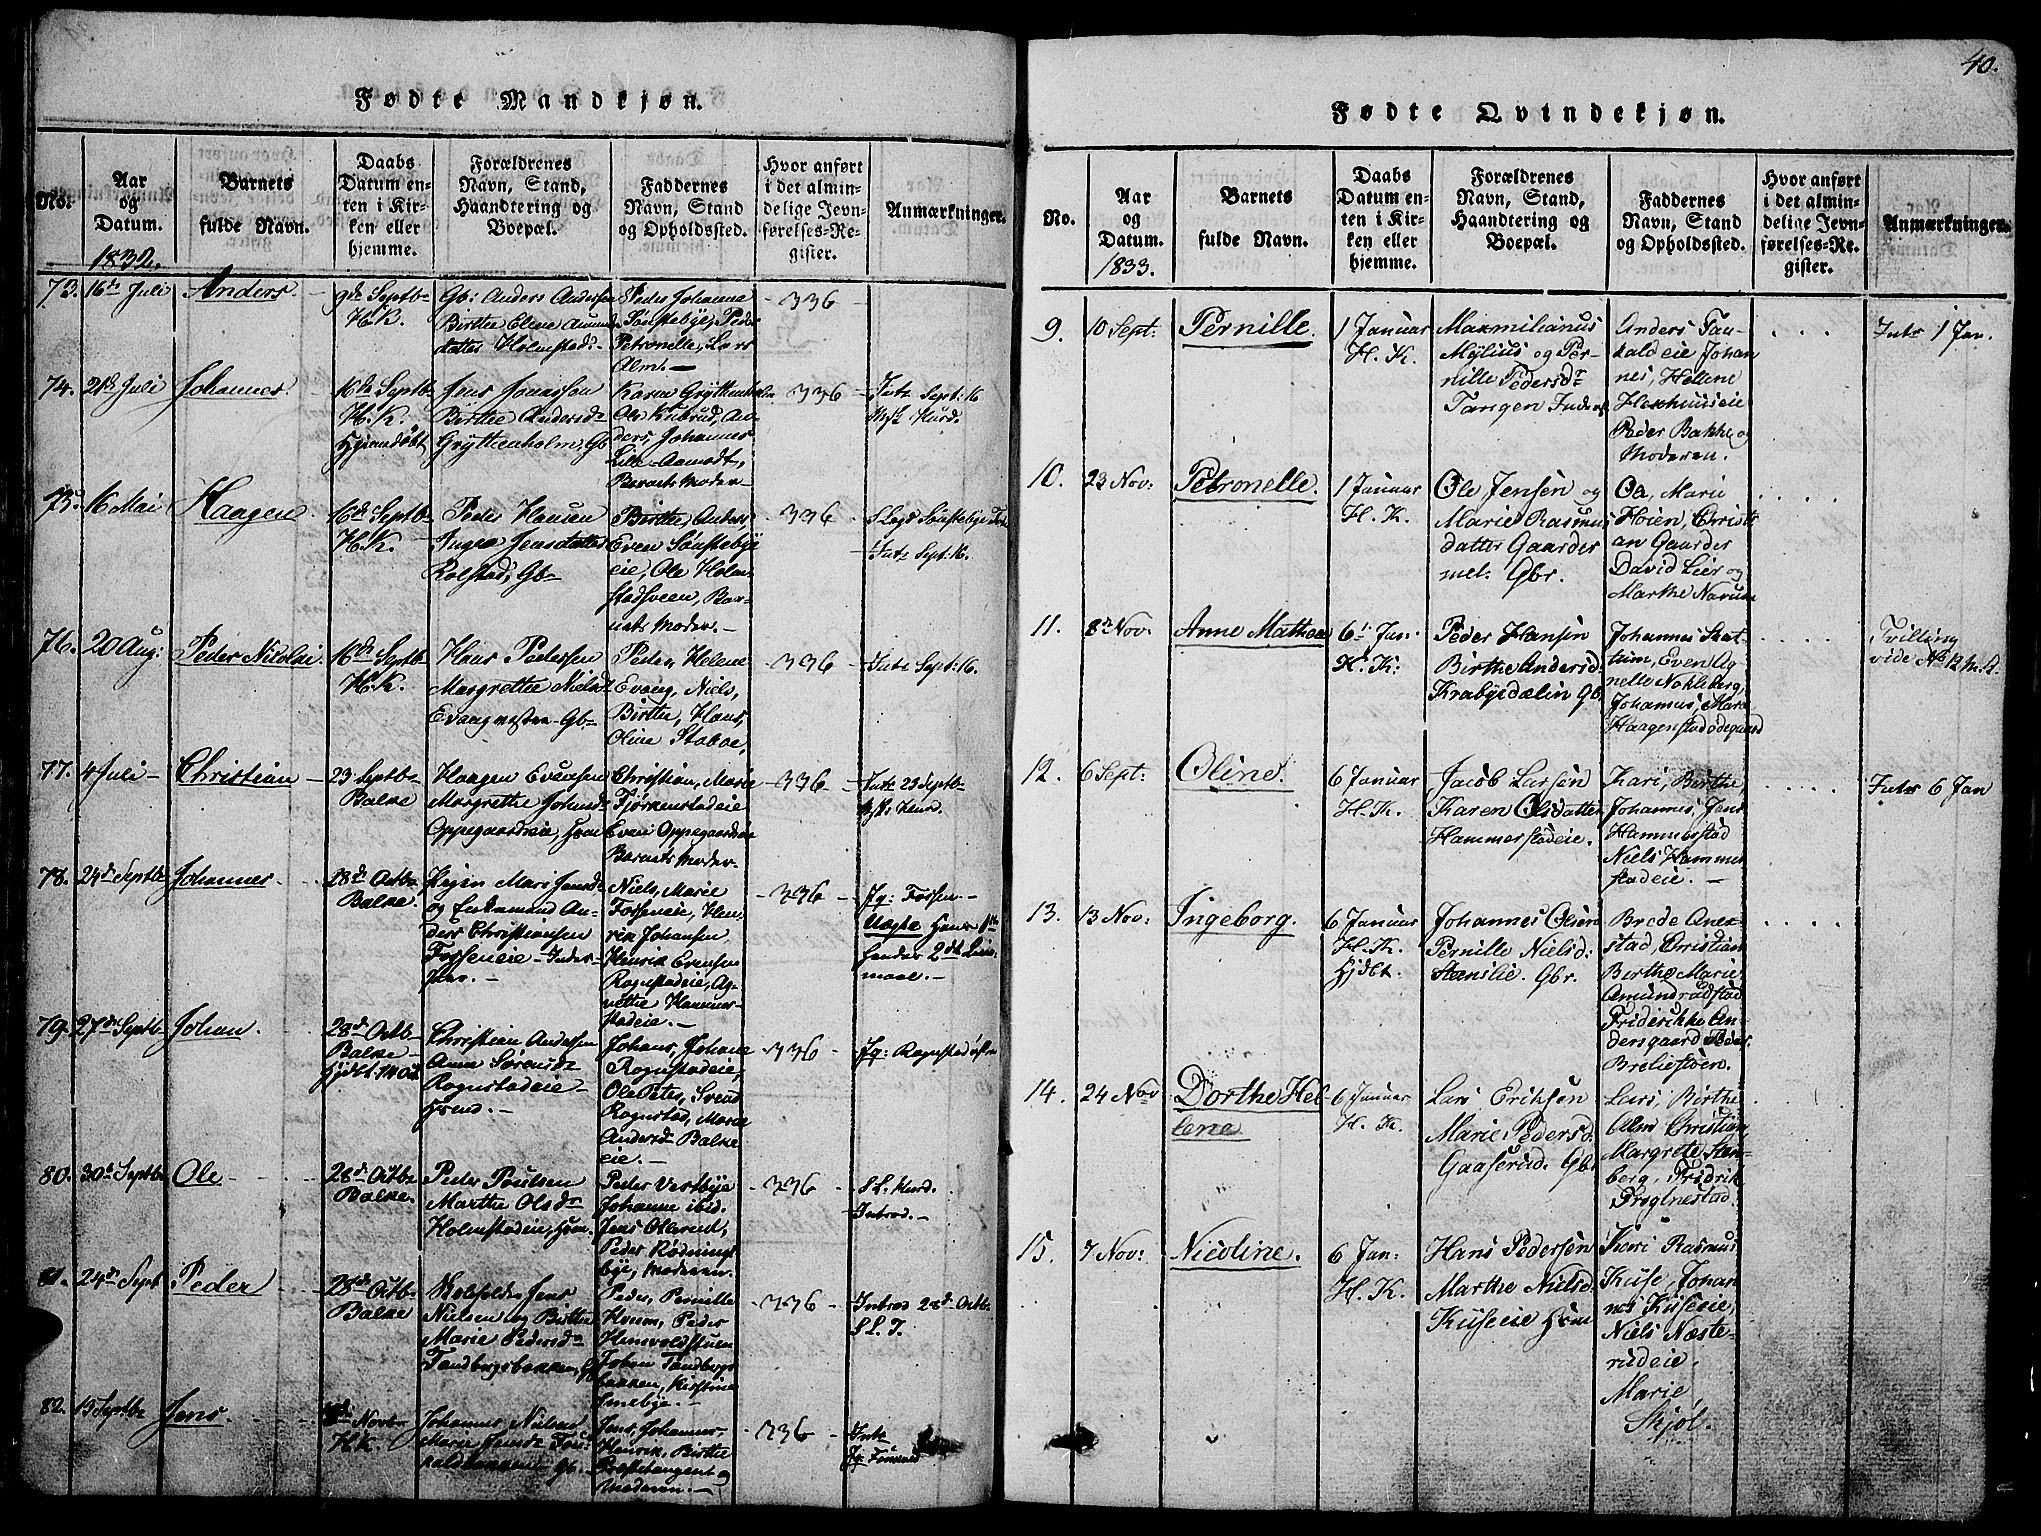 40.
Fødte Mandkjøn.
No.
Aar
og
Datum.
1832.
Barnets
fulde Navn.
Daabs
Datum en-
ten i Kir-
ken eller
hjemme.
Forældrenes
Navn, Stand,
Haandtering og
Boepæl.
Faddernes
Navn, Stand
og Opholdssted.
Hvor anført
i det almin-
delige Jevn-
førelses-Re-
gister.
Anmærkninger.
73.
16de Juli
Anders.
9de Septb
H.K.
Gb: Anders Andersen
Birthe Elene Amund
datter Holmstad
Peder Johanna
Sønstebye, Peder
Petronelle, Lars
Alm.
336
74.
21de Juli
Johannes.
16de Septb
H.K.
Hjemdøbt
Jens Jonassen
Birthe Andersd
Gryttenholm, Gb
Karen Gryttenholm
Ole Kubrud, An-
ders, Johannes
Lille-Aamodt,
Barnets Moder
336
Intr Sept: 16
75.
16 Mai
Haagen
16de Septb
H.K.
Peder Hansen
Inger Jensdatter
Rolstad, Gb
Birthe, Anders
Even Sønstebye
eie, Ole Holm-
stadsveen, Bar-
nets Moder.
336
Intr Sept: 16.
76.
20 Aug:
Peder Nicolai
16de Septb
H.K.
Hans Pedersen
Margrethe Nielsd
Evang vestre Gb
Peder, Helene
Evang, Niels,
Birthe, Hans,
Oline Staboe,
336
Intr Sept: 16.
77.
4 Juli
Christian
23 Septb
Balke
Haagen Evensen
Margrethe Johansd
Oppegaardseie, Huusm
Christian, Marie
Fjørkenstadeie
Even Oppegaardseie
Barnets Moder
336
Intr 23 Septb
78.
24de Septb
Johannes
28de Octb
Balke.
Pigen Mari Jensd
og Enkemand An-
ders Christiansen
Fosseneie Inder-
ster.
Niels, Marie
Fosseneie, Hen-
rik Johansen,
Henrik Evensen
Rognstadeie, Ag-
nethe Hammer-
stadeie.
336
Jg: Fossen
Uægte Hans 1ste
hendes 2det Leier-
maal.
79.
27de Septb
Johan.
28de Octb
Balke
Hjdbt. 14 Oct.
Christian Andersen
Anne Sørensd
Rognstadeie
Huusmd.
Johans, Johane
Rognstadeie,
Ole Peter, Svend
Rognstad, Marie
Andersd Balke
eie.
336
Jg: Rognstad østre
80.
30te Septb
Ole
28de Octb
Balke.
Peder Poulsen
Marthe Olsdr
Holmstadeie, Huusm.
Peder Vestbye
Johanne ibid.
Jens Ollerud,
Peder Rødnings
bye, Moderen.
336
Introd.
81.
24de Sept
Peder
28de Octb
Balke
Jens
Nielsen og Birthe
Marie Pedersd
Tandbergsbakken, Gb
Peder, Pernille
Hveem, Peder
Hemvoldstuen
Johan Tandbergs
bakken, Kirstine
Smebye.
336
Introd 28de Octb
82.
15 Septb
Jens.
Novb
H.K.
Johannes Nielsen
Marie Jensd
Gb.
Jens, Johannes
Henrik, Birthe
Præstetangent og
Moderen.
336
Intr
Fødte Qvindekjøn.
No.
Aar
og
Datum.
1833.
Barnets
fulde Navn.
Daabs
Datum en-
ten i Kir-
ken eller
hjemme.
Forældrenes
Navn, Stand,
Haandtering og
Boepæl.
Faddernes
Navn, Stand
og Opholdssted.
Hvor anført
i det almin-
delige Jevn-
førelses-Re-
gister.
Anmærkninger.
9.
10 Sept:
Pernille.
1 Januar
H. K.
Maxmilianus
Mylius og Per-
nille Pedersdr
Tangen Inderst
Anders Tau-
kaldeie Johan
nes, Hellene
Hexhuuseie
Peder Bakke og
Moderen.
Intr 1 Jan.
10.
23 Nov:
Petronelle.
1 Januar
H. K.
Ole Jensen og
Marie Rasmus
datter Gaarder
mel: Gbr.
Oa, Marie
Høien, Christi
an Gaarder
David Lier og
Marthe Narum
11.
8de Nov:
Anne Mathea
6te Jan:
H. K.
Peder Hansen
Birthe Andersd:
Krabysdælin Gb
Johannes Sset-
trum, Even Ag-
nelle Nøkleberg,
Johannes, Mari
Haagenstadødegaard
Tvilling
vide No 12 M. K.
12.
6 Sept:
Oline.
6 Januar
H. K.
Jacob Larsen
Karen Olsdatter
Hammerstadeie.
Kari, Birthe,
Johannes, Jens
Hammerstad
Niels Hammer
stadeie.
Intr 6 Jan
13.
13 Nov:
Ingeborg.
6 Januar
H. K.
Hjdbt.
Johannes Olsen
Pernille Nielsd:
Stenslie. Gbr.
Brede Anex-
stad, Christian
Birthe Marie
Amundrudstad
Friderikke An-
dersgaard Peder
Breliestøen.
14.
24 Nov
Dorthe Hel-
lene
6 Januar
H. K.
Lars Eriksen
Marie Pedersd.
Gaaserud. Gbr
Lars, Birthe
Alm Christian,
Margrete Sten-
berg, Fridrik
Droglnestad.
15.
7 Nov:
Nicoline.
6 Jan:
H. K.
Hans Pedersen
Marthe Nielsd
Kiiseeie Huusm
Kari Rasmus
Kiise, Johan
nes Kiiseeie,
Niels Næste-
rudeie.
Marie
Skjøl.